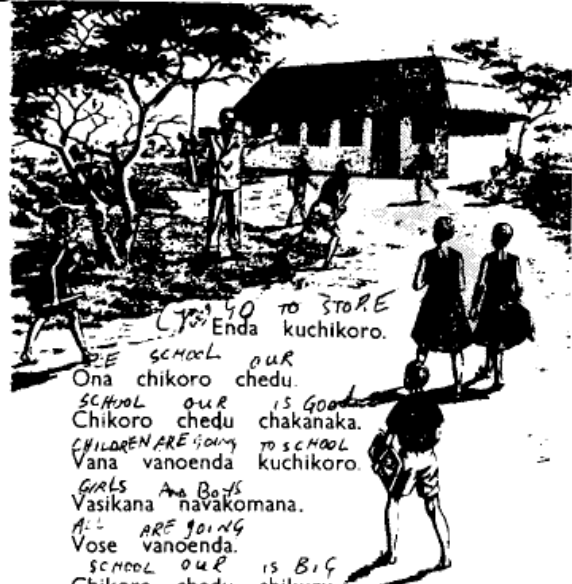 GO TO STORE
Enda kuchikoro.
SCHOOL OUR
Ona chikoro chedu.
SCHOOL OUR IS GOOD
Chikoro chedu chakanaka.
CHILDREN ARE GOING TO SCHOOL
Vana vanoenda kuchikoro.
GIRLS AND BOYS
Vasikana navakomana.
ALL ARE GOING
Vose vanoenda.
SCHOOL OUR IS BIG
Chikoro chedu